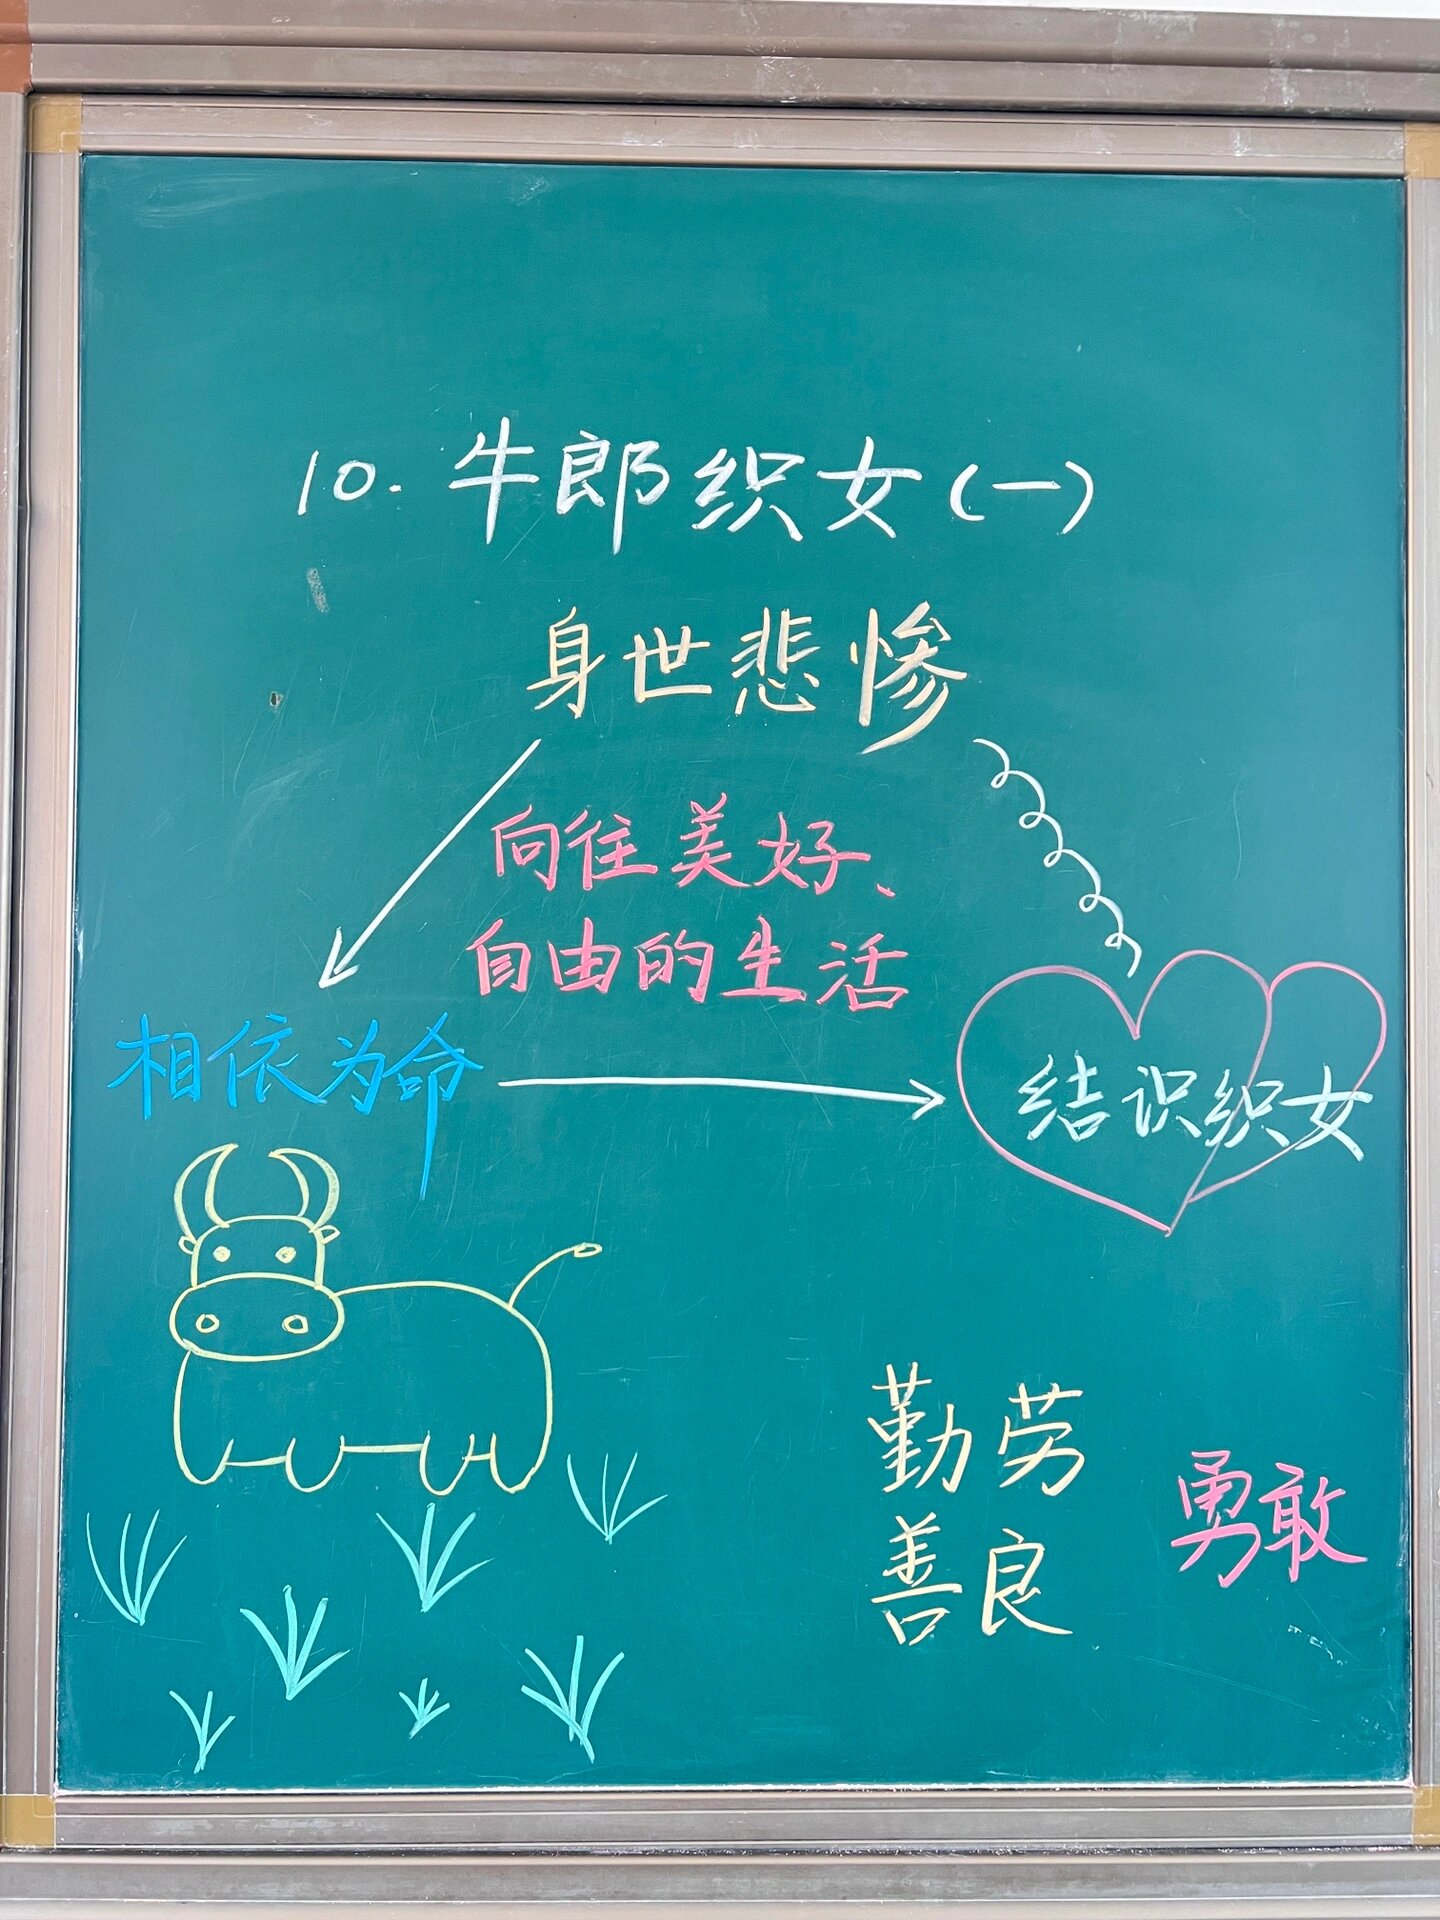 10. 牛郎织女(一)
身世悲惨
向往美好、
自由的生活
相依为命
结识织女
勤劳
善良
勇敢